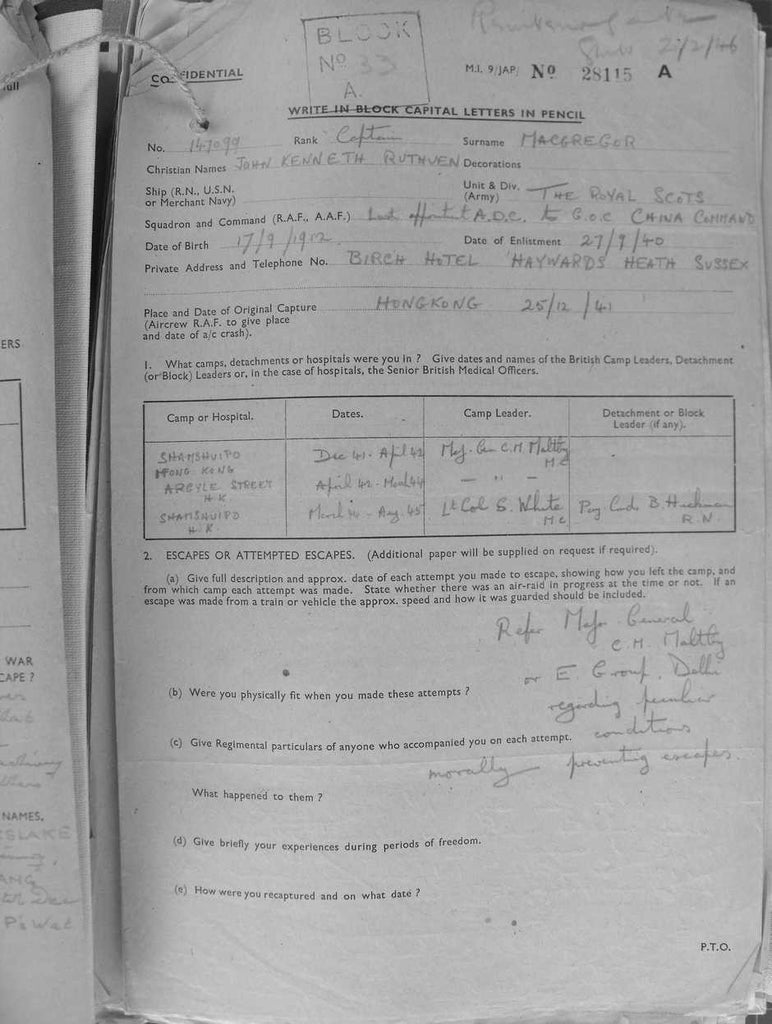 BLOCK
No 33
A.
2/2/46
CONFIDENTIAL
M.I. 9/JAP/ No 28115 A
WRITE IN BLOCK CAPITAL LETTERS IN PENCIL
No. 147099 Rank Captain Surname MACGREGOR
Christian Names JOHN KENNETH RUTHVEN Decorations
Ship (R.N., U.S.N. or Merchant Navy) Unit & Div. (Army) THE ROYAL SCOTS
Squadron and Command (R.A.F., A.A.F.) Last appointment A.D.C. to G.O.C CHINA COMMAND
Date of Birth 17/9/1912 Date of Enlistment 27/9/40
Private Address and Telephone No. BIRCH HOTEL HAYWARDS HEATH SUSSEX
Place and Date of Original Capture HONGKONG 25/12/41
(Aircrew R.A.F. to give place
and date of a/c crash).
1. What camps, detachments or hospitals were you in ? Give dates and names of the British Camp Leaders, Detachment
(or Block) Leaders or, in the case of hospitals, the Senior British Medical Officers.
Camp or Hospital. Dates. Camp Leader. Detachment or Block Leader (if any).
SHAMSHUIPO Dec 41 - April 42 Maj. Gen C.M. Maltby
HONG KONG M.C
ARGYLE STREET April 42 - March 44 — " —
H.K.
SHAMSHUIPO March 44 - Aug. 45 Lt Col S. White Pay. Cmdr B. Hickman
H.K. M.C R.N.
2. ESCAPES OR ATTEMPTED ESCAPES. (Additional paper will be supplied on request if required).
(a) Give full description and approx. date of each attempt you made to escape, showing how you left the camp, and
from which camp each attempt was made. State whether there was an air-raid in progress at the time or not. If an
escape was made from a train or vehicle the approx. speed and how it was guarded should be included.
Refer Major General
C.M. Maltby
or E Group, Delhi
(b) Were you physically fit when you made these attempts ?
regarding peculiar
(c) Give Regimental particulars of anyone who accompanied you on each attempt.
conditions
morally preventing escapes.
What happened to them ?
(d) Give briefly your experiences during periods of freedom.
(e) How were you recaptured and on what date ?
P.T.O.
ull
ERS
WAR
CAPE ?
NAMES,
SLAKE
ANG